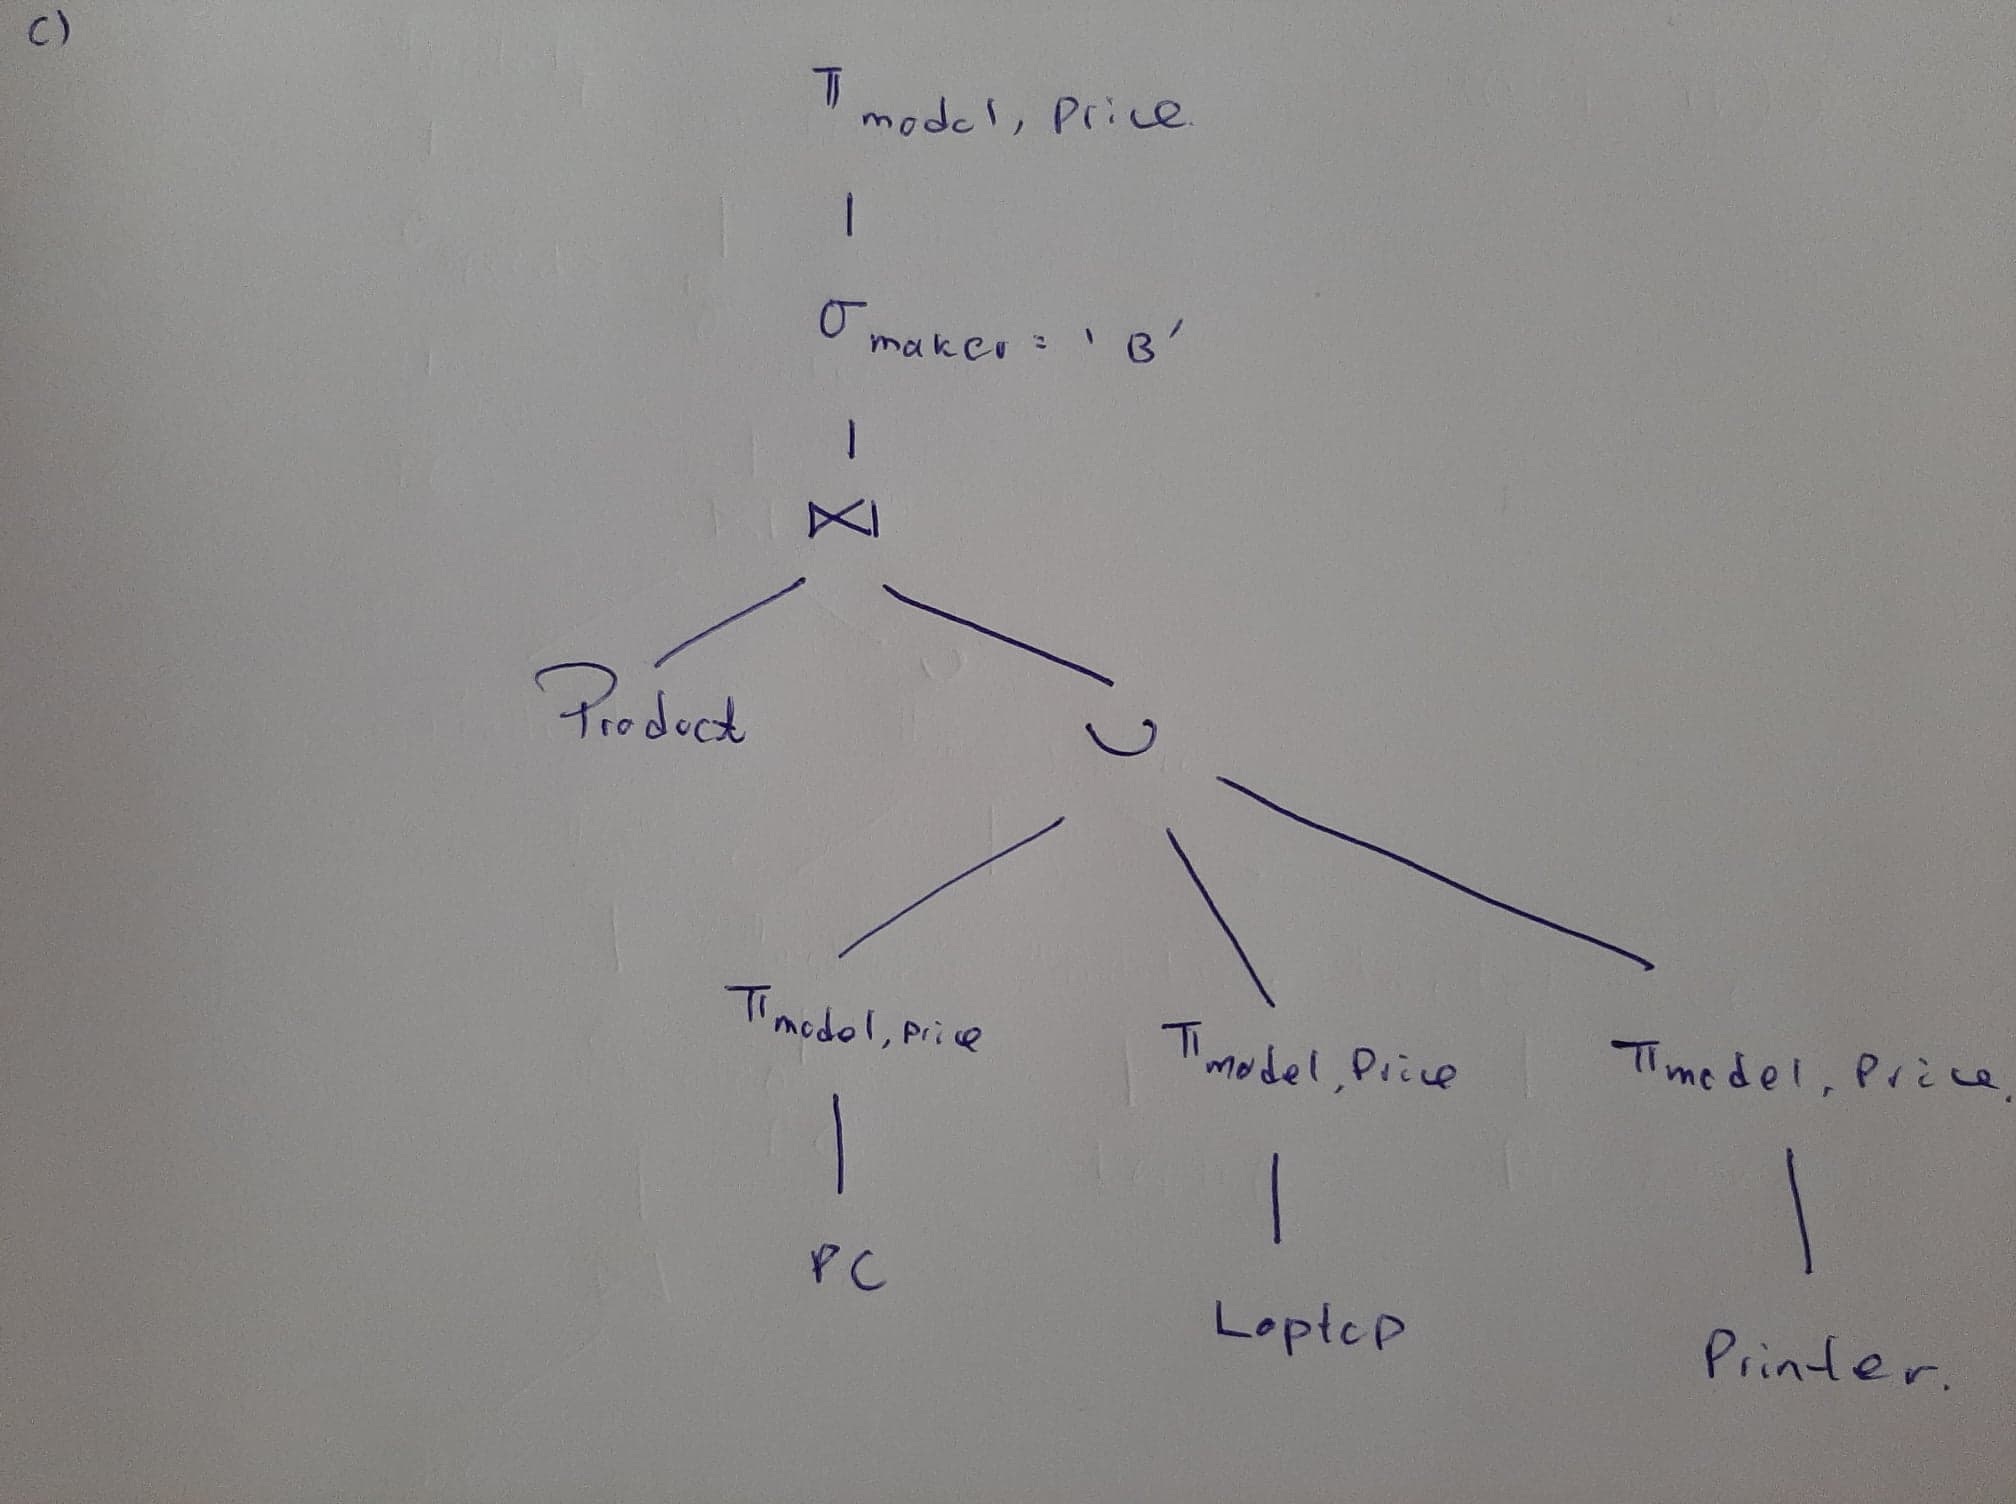 c)
π model, Price.
σ maker = 'B'
⋈
Product
∪
π model, price π model, Price π model, Price.
PC
Laptop
Printer.